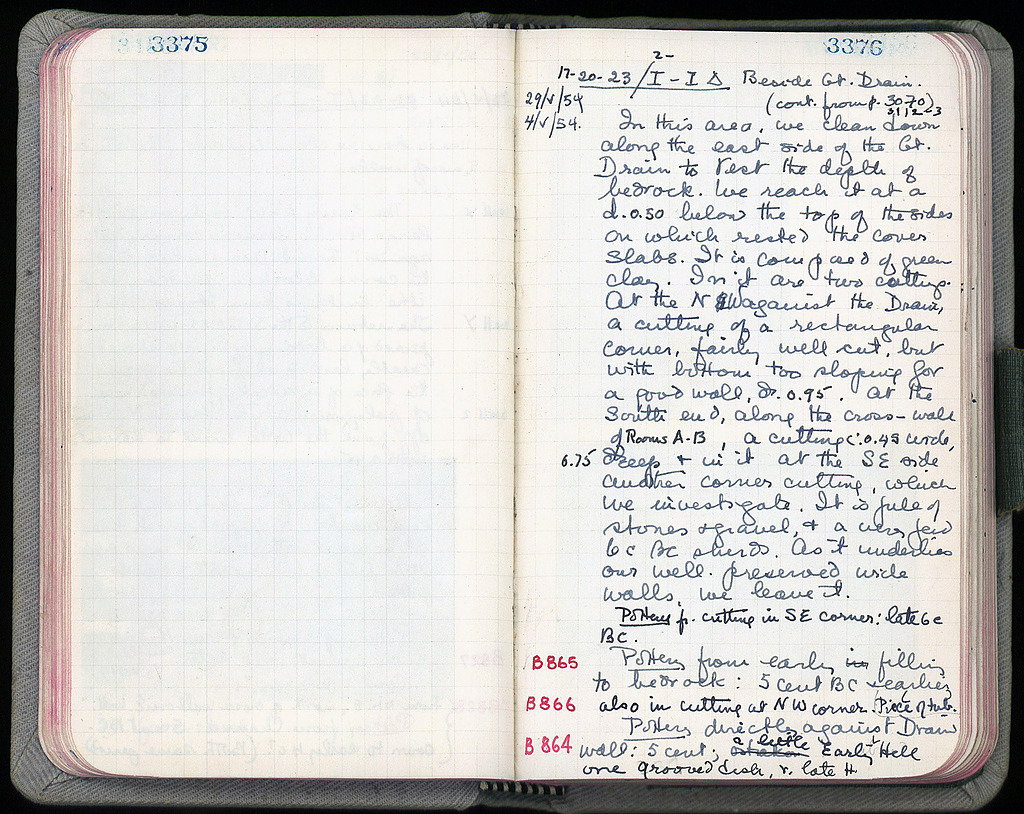 3375
3376
2-
17-20-23/I-IΔ Beside Gt. Drain.
29/V/54 (cont. from p. 3070)
31,2-3
4/V/54. In this area, we clean down
along the east side of the Gt.
Drain to test the depth of
bedrock. We reach it at a
d. 0.50 below the top of the sides
on which rested the cover
slabs. It is composed of green
clay. In it are two cuttings.
At the NW against the Drain,
a cutting of a rectangular
corner, fairly well cut, but
with bottom too sloping for
a good wall, d. 0.95. At the
South end, along the cross-wall
of Rooms A-B, a cutting c. 0.45 wide,
6.75 deep + in it at the SE side
another corner cutting, which
we investigate. It is full of
stones + gravel, + a very few
6c BC sherds. As it underlies
our well-preserved wide
walls, we leave it.
Pottery f. cutting in SE corner: late 6c
BC.
B865 Pottery from early filling
to bedrock: 5 cent BC + earlier,
B866 also in cutting at NW corner. (Piece of tub.
Pottery directly against Drain
B864 wall: 5 cent, a little Early Hell
one grooved dish, v. late H